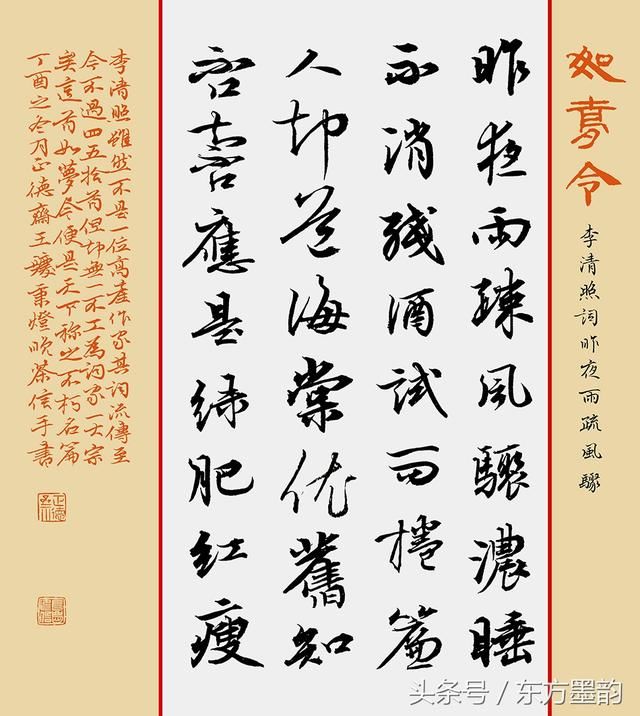 如夢令
李清照詞昨夜雨疏風驟
昨夜雨疎風驟濃睡
不消殘酒試問捲簾
人却道海棠依舊知
否知否應是綠肥紅瘦
李清照雖然不是一位高產作家其詞流傳至
今不過四五拾首但却無一不工為詞家一大宗
矣這首如夢令便是天下稱之不朽名篇
丁酉之冬月正德齋王驥秉燈晚茶信手書
头条号／东方墨韵